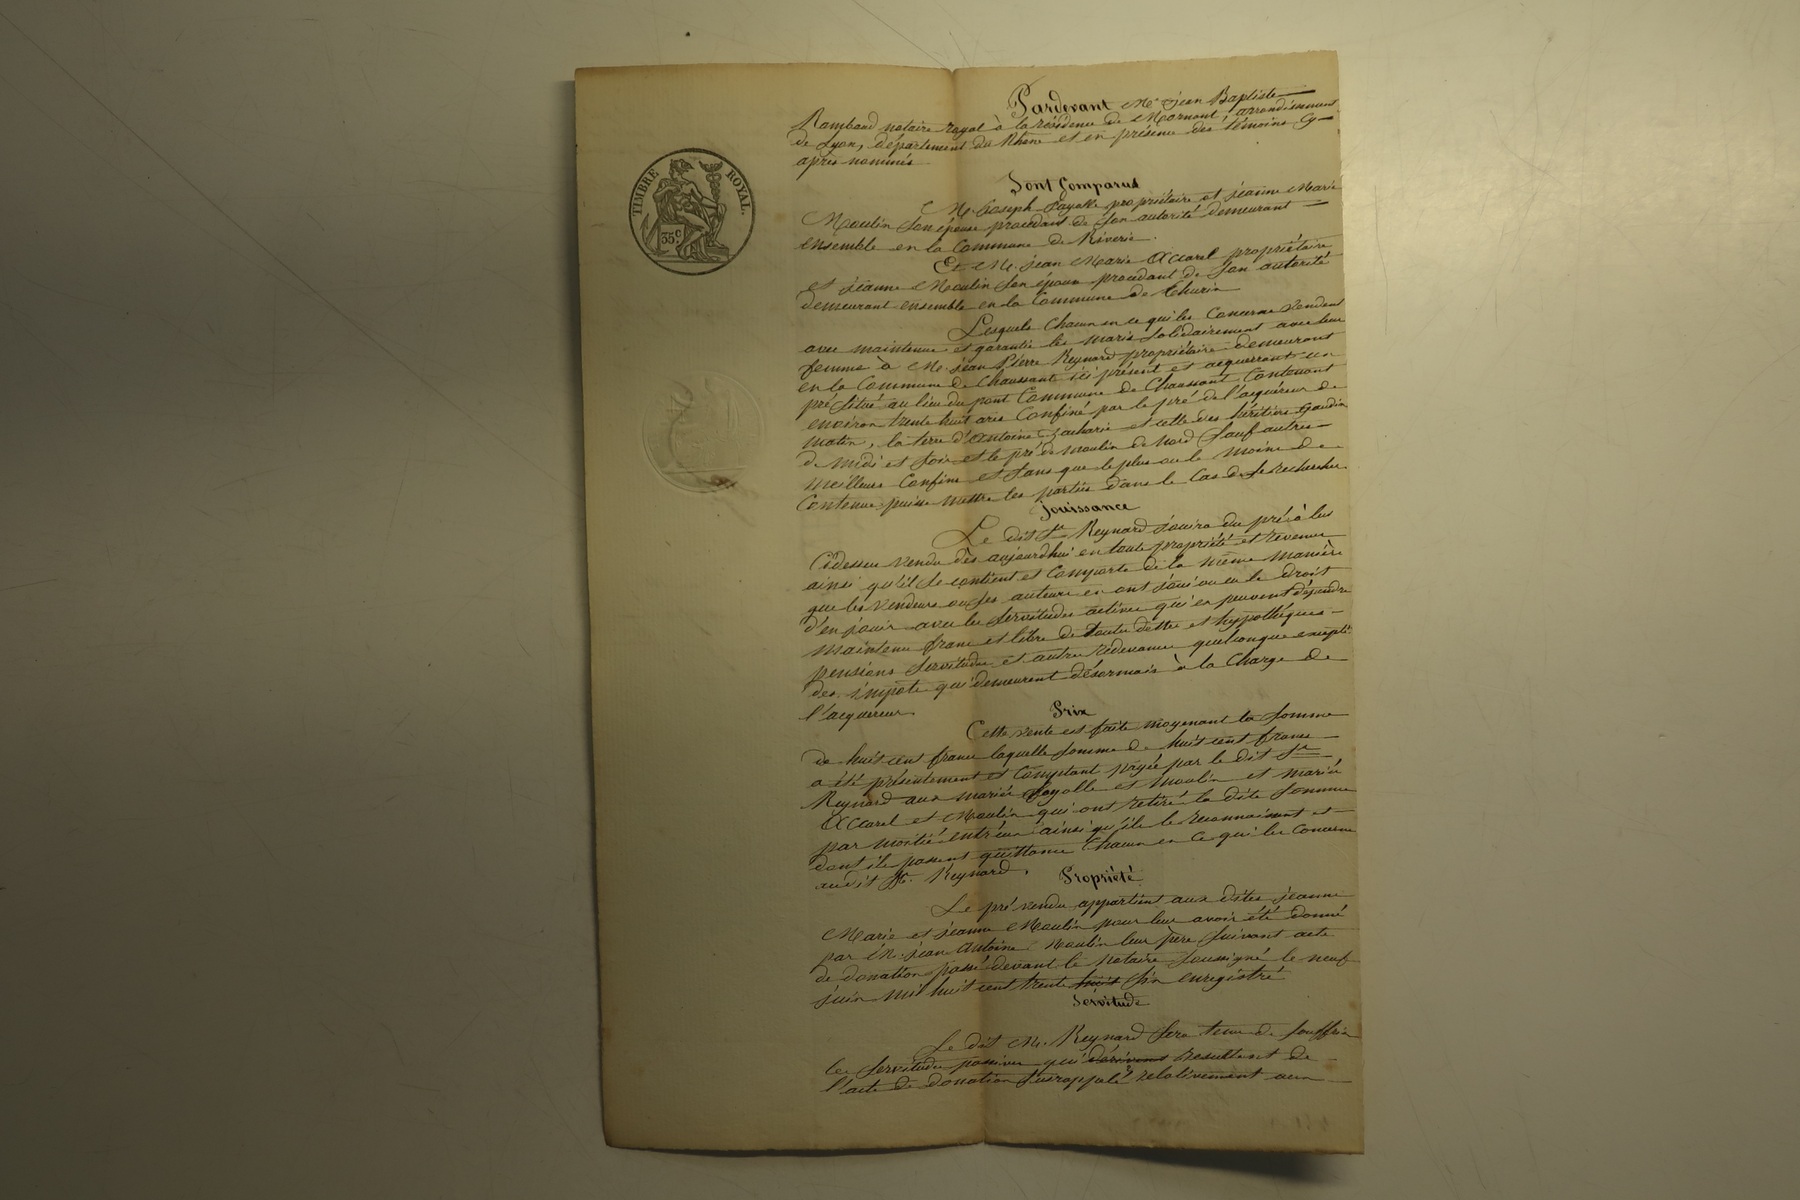 TIMBRE ROYAL.
35c
Pardevant Me jean Baptiste
Rambaud notaire royal à la résidence de Mornant, arrondissement
de Lyon, département du Rhône et en présence des témoins cy
après nommés
Sont Comparus
M. Joseph Fayolle propriétaire et jeanne Marie
Moulin son épouse procédant de son autorité demeurant
ensemble en la Commune de Riverie.
Et M. jean Marie Accarel propriétaire
et jeanne Moulin son épouse procédant de son autorité
demeurant ensemble en la Commune de Thurin
Lesquels chacun en ce qui les concerne vendent
avec maintenue et garantie les maris solidairement avec leur
femme à M. jean Pierre Reynard propriétaire demeurant
en la Commune de Chaussant ici présent et acquerrant un
pré situé au lieu du pont Commune de Chaussant Contenant
environ trente huit ares Confiné par le pré de l'acquéreur de
matin, la terre d'Antoine Zacharie et celle des héritiers Gaudin
de midi et soir et le pré de moulin de nord sauf autres
meilleurs Confins et sans que le plus ou le moins de
Contenue puisse mettre les parties dans le Cas de se rechercher
Jouissance
Le dit Sr Reynard jouira du pré à lui
Cidessus vendu dès aujourdhui en toute propriété et revenus
ainsi qu'il se contient et comporte de la même manière
que les vendeurs ou ses auteurs en ont joui ou eu le droit
d'en jouir avec les servitudes actives qui en peuvent dépendre
maintenu franc et libre de toutes dettes et hypothèques
pensions servitudes et autre redevance quelconque excepté
des impôts qui demeurent désormais à la charge de
l'acquéreur
Prix
Cette vente est faite moyenant la somme
de huit cent francs laquelle somme de huit cent francs
a été présentement et comptant payée par le dit Sr
Reynard aux mariés Fayolle et Moulin et mariés
Accarel et Moulin qui ont retiré la dite somme
par moitié entr'eux ainsi qu'ils le reconnaissent et
dont ils passent quittance chacun en ce qui les concerne
audit Sr. Reynard.
Propriété
Le pré vendu appartient aux dites jeanne
Marie et jeanne Moulin pour leur avoir été donné
par M. jean Antoine Moulin leur père suivant acte
de donation passé devant le notaire soussigné le neuf
juin mil huit cent trente huit six enregistré
Servitude
Le dit M. Reynard sera tenu de souffrir
les servitudes passives qui dérivent resultent de
l'acte de donation susrappelé relativement aux